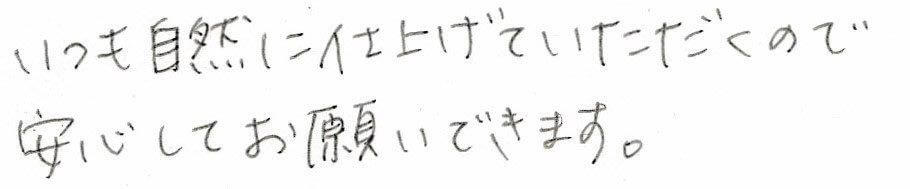 いつも自然に仕上げていただくので
安心してお願いできます。